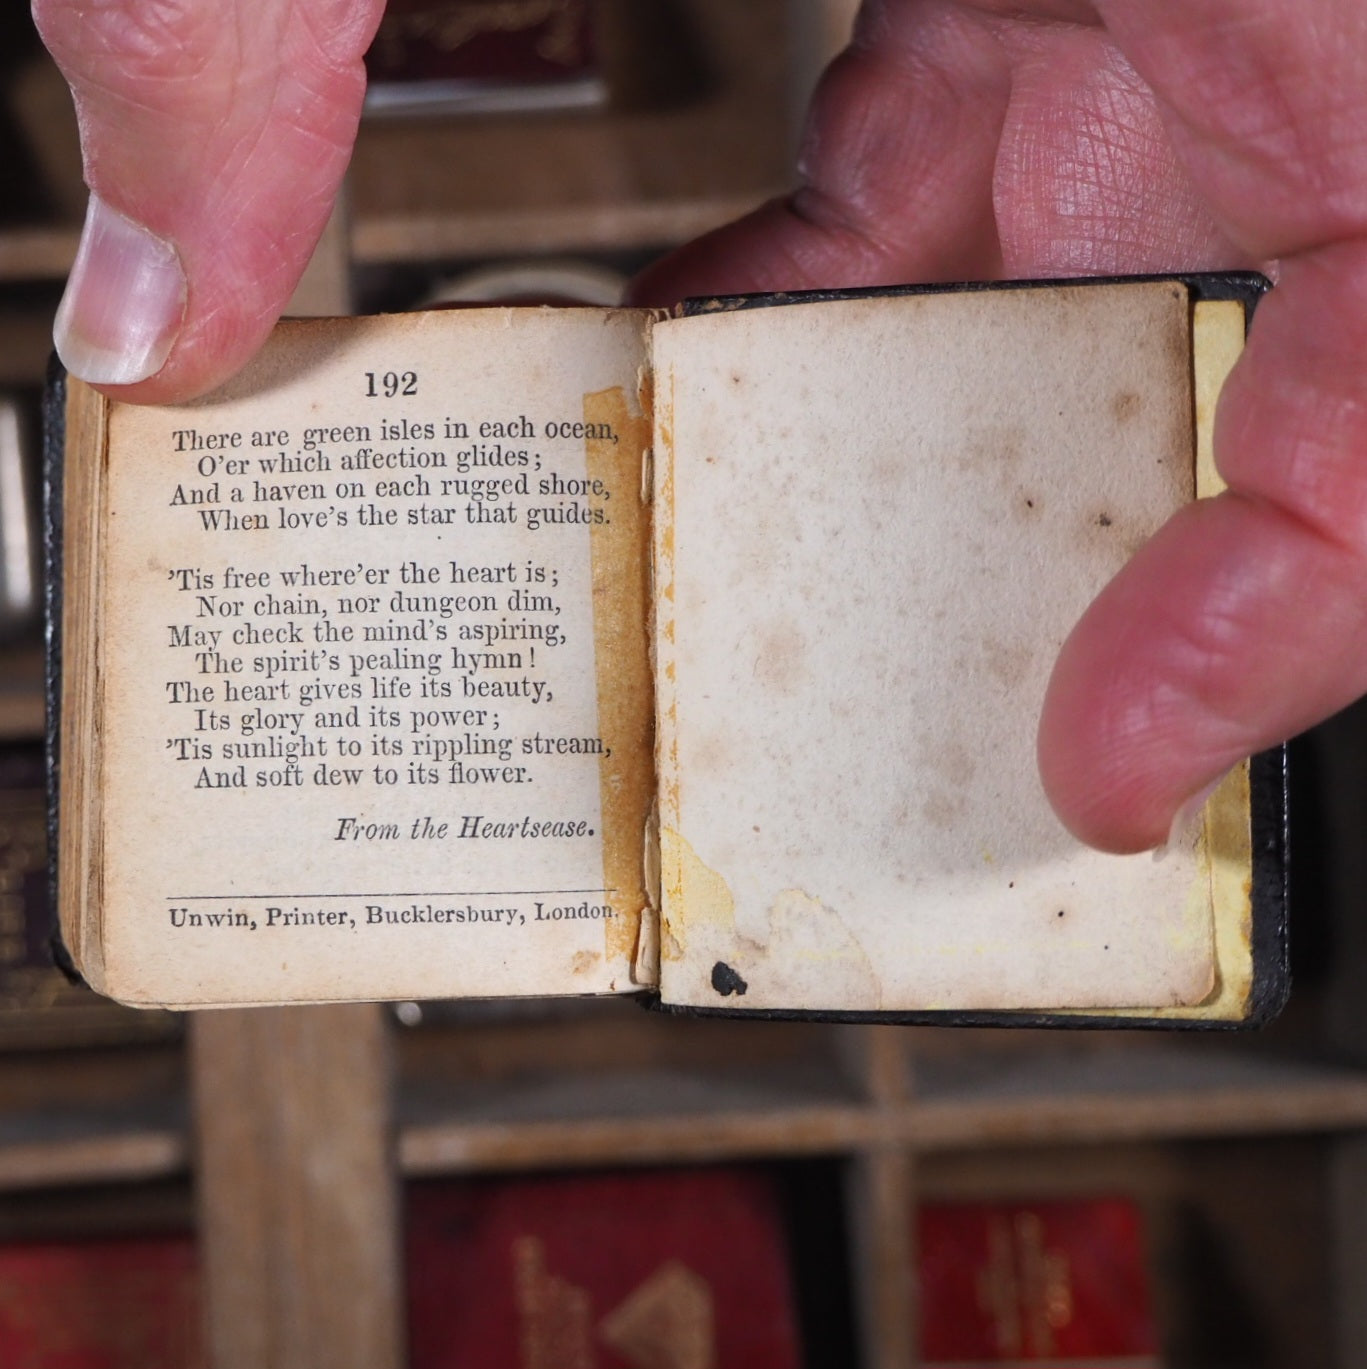 192
There are green isles in each ocean,
O'er which affection glides;
And a haven on each rugged shore,
When love's the star that guides.
'Tis free where'er the heart is;
Nor chain, nor dungeon dim,
May check the mind's aspiring,
The spirit's pealing hymn!
The heart gives life its beauty,
Its glory and its power;
'Tis sunlight to its rippling stream,
And soft dew to its flower.
From the Heartsease.
Unwin, Printer, Bucklersbury, London.